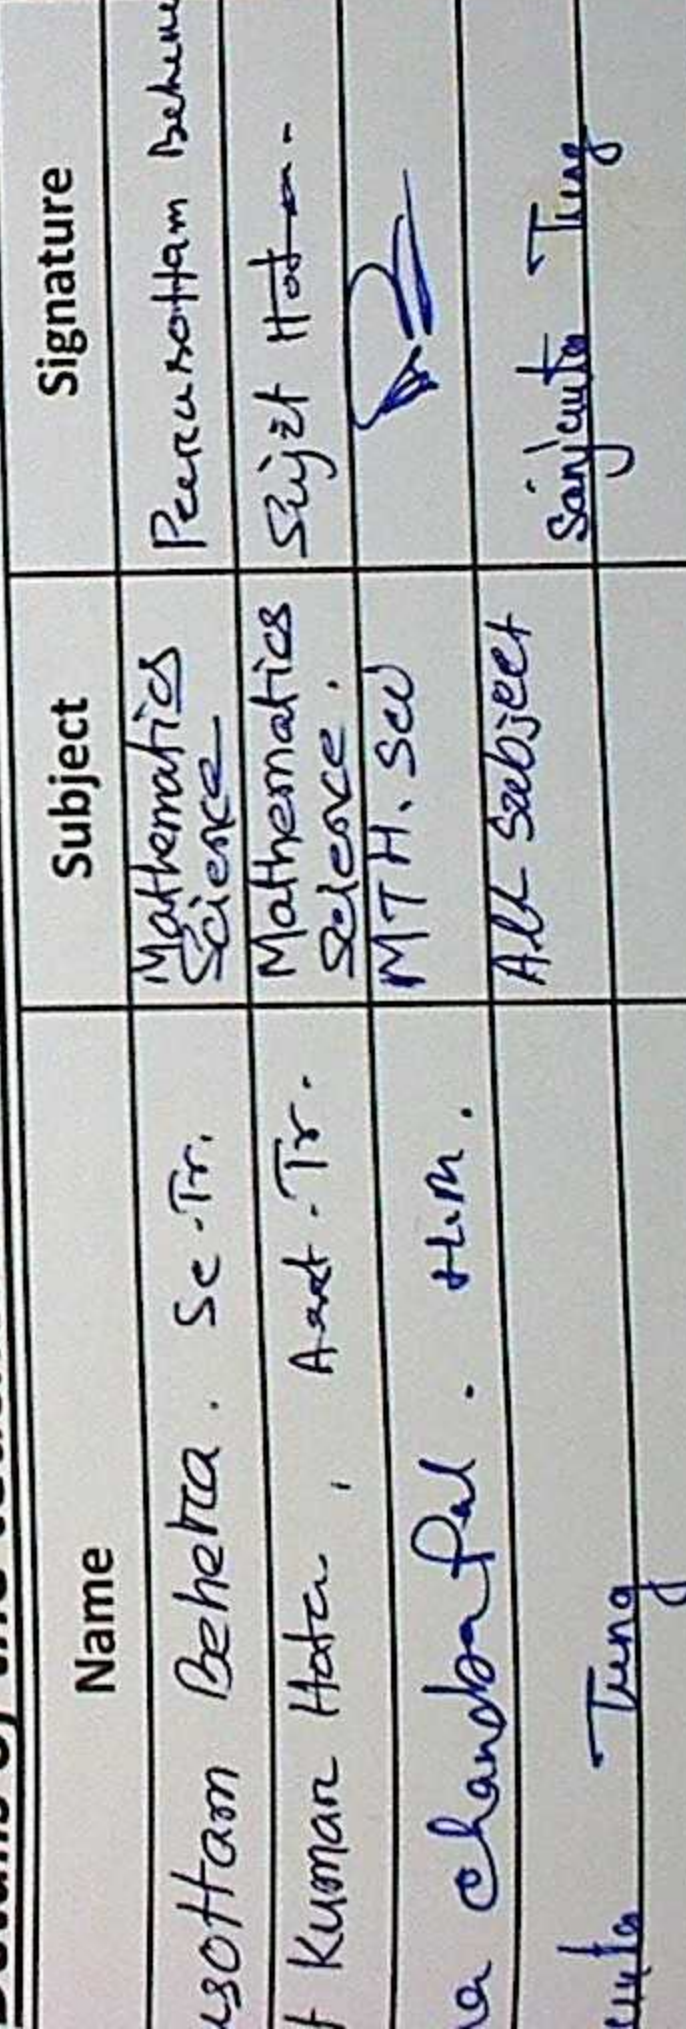 Details of the teach
Name Subject Signature
usottam Behera. Sc-Tr. Mathematics Science Peerusottam Behera
t Kumar Hota, Asst-Tr. Mathematics Science. Sujit Hota
a chandra Pal. H.M. MTH. Sci
uta Tung All Subject Sanjuta Tung